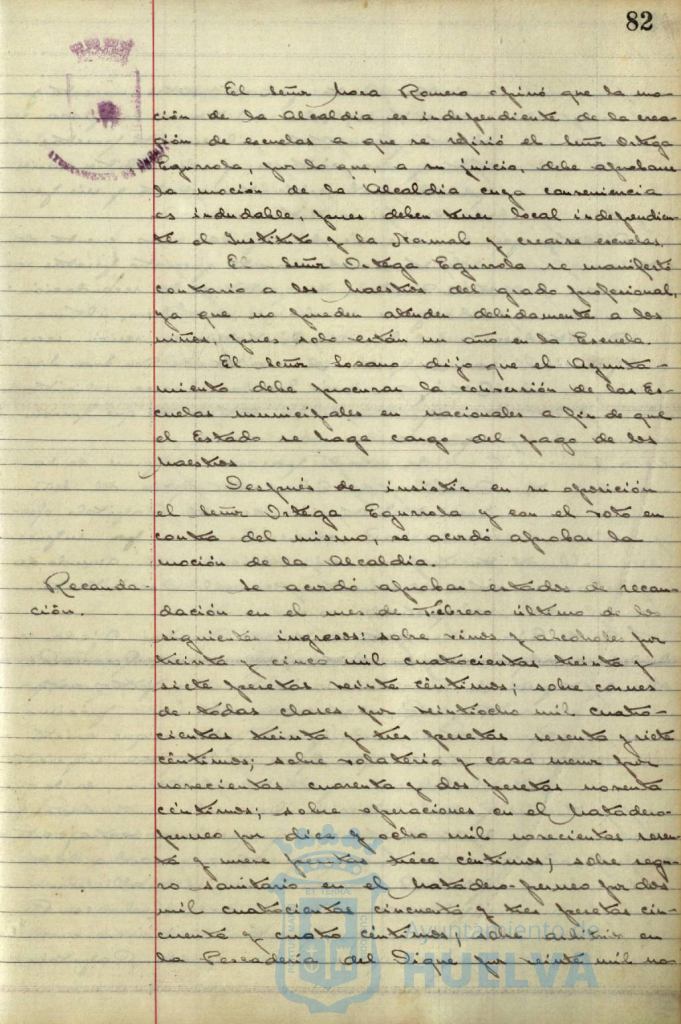 82
El Señor Mora Romero opinó que la mo-
ción de la Alcaldía es independiente de la crea-
ción de escuelas a que se refirió el Señor Ortega
Egurrola, por lo que, a su juicio, debe aprobarse
la moción de la Alcaldía cuya conveniencia
es indudable, pues deben tener local independien-
te el Instituto y la Normal y crearse escuelas.
El Señor Ortega Egurrola se manifestó
contrario a los Maestros del grado profesional,
ya que no pueden atender debidamente a los
niños, pues solo están un año en la Escuela.
El Señor Lozano dijo que el Ayunta-
miento debe procurar la conversión de las Es-
cuelas municipales en nacionales a fin de que
el Estado se haga cargo del pago de los
Maestros
Después de insistir en su oposición
el Señor Ortega Egurrola y con el voto en
contra del mismo, se acordó aprobar la
moción de la Alcaldía.
Recauda-
ción.
Se acordó aprobar estados de recau-
dación en el mes de Febrero último de los
siguientes ingresos: sobre vinos y alcoholes por
treinta y cinco mil cuatrocientas treinta y
siete pesetas veinte céntimos; sobre carnes
de todas clases por veintiocho mil cuatro-
cientas treinta y tres pesetas sesenta y siete
céntimos; sobre volatería y caza menor por
novecientas cuarenta y dos pesetas noventa
céntimos; sobre operaciones en el Matadero-
porneo por diez y ocho mil novecientas sesen-
ta y nueve pesetas trece céntimos; sobre segu-
ro sanitario en el Matadero-porneo por dos
mil cuatrocientas cincuenta y tres pesetas cin-
cuenta y cuatro céntimos; sobre arbitrio en
la Pescadería del Dique por veinte mil no-
Ayuntamiento de
HUELVA